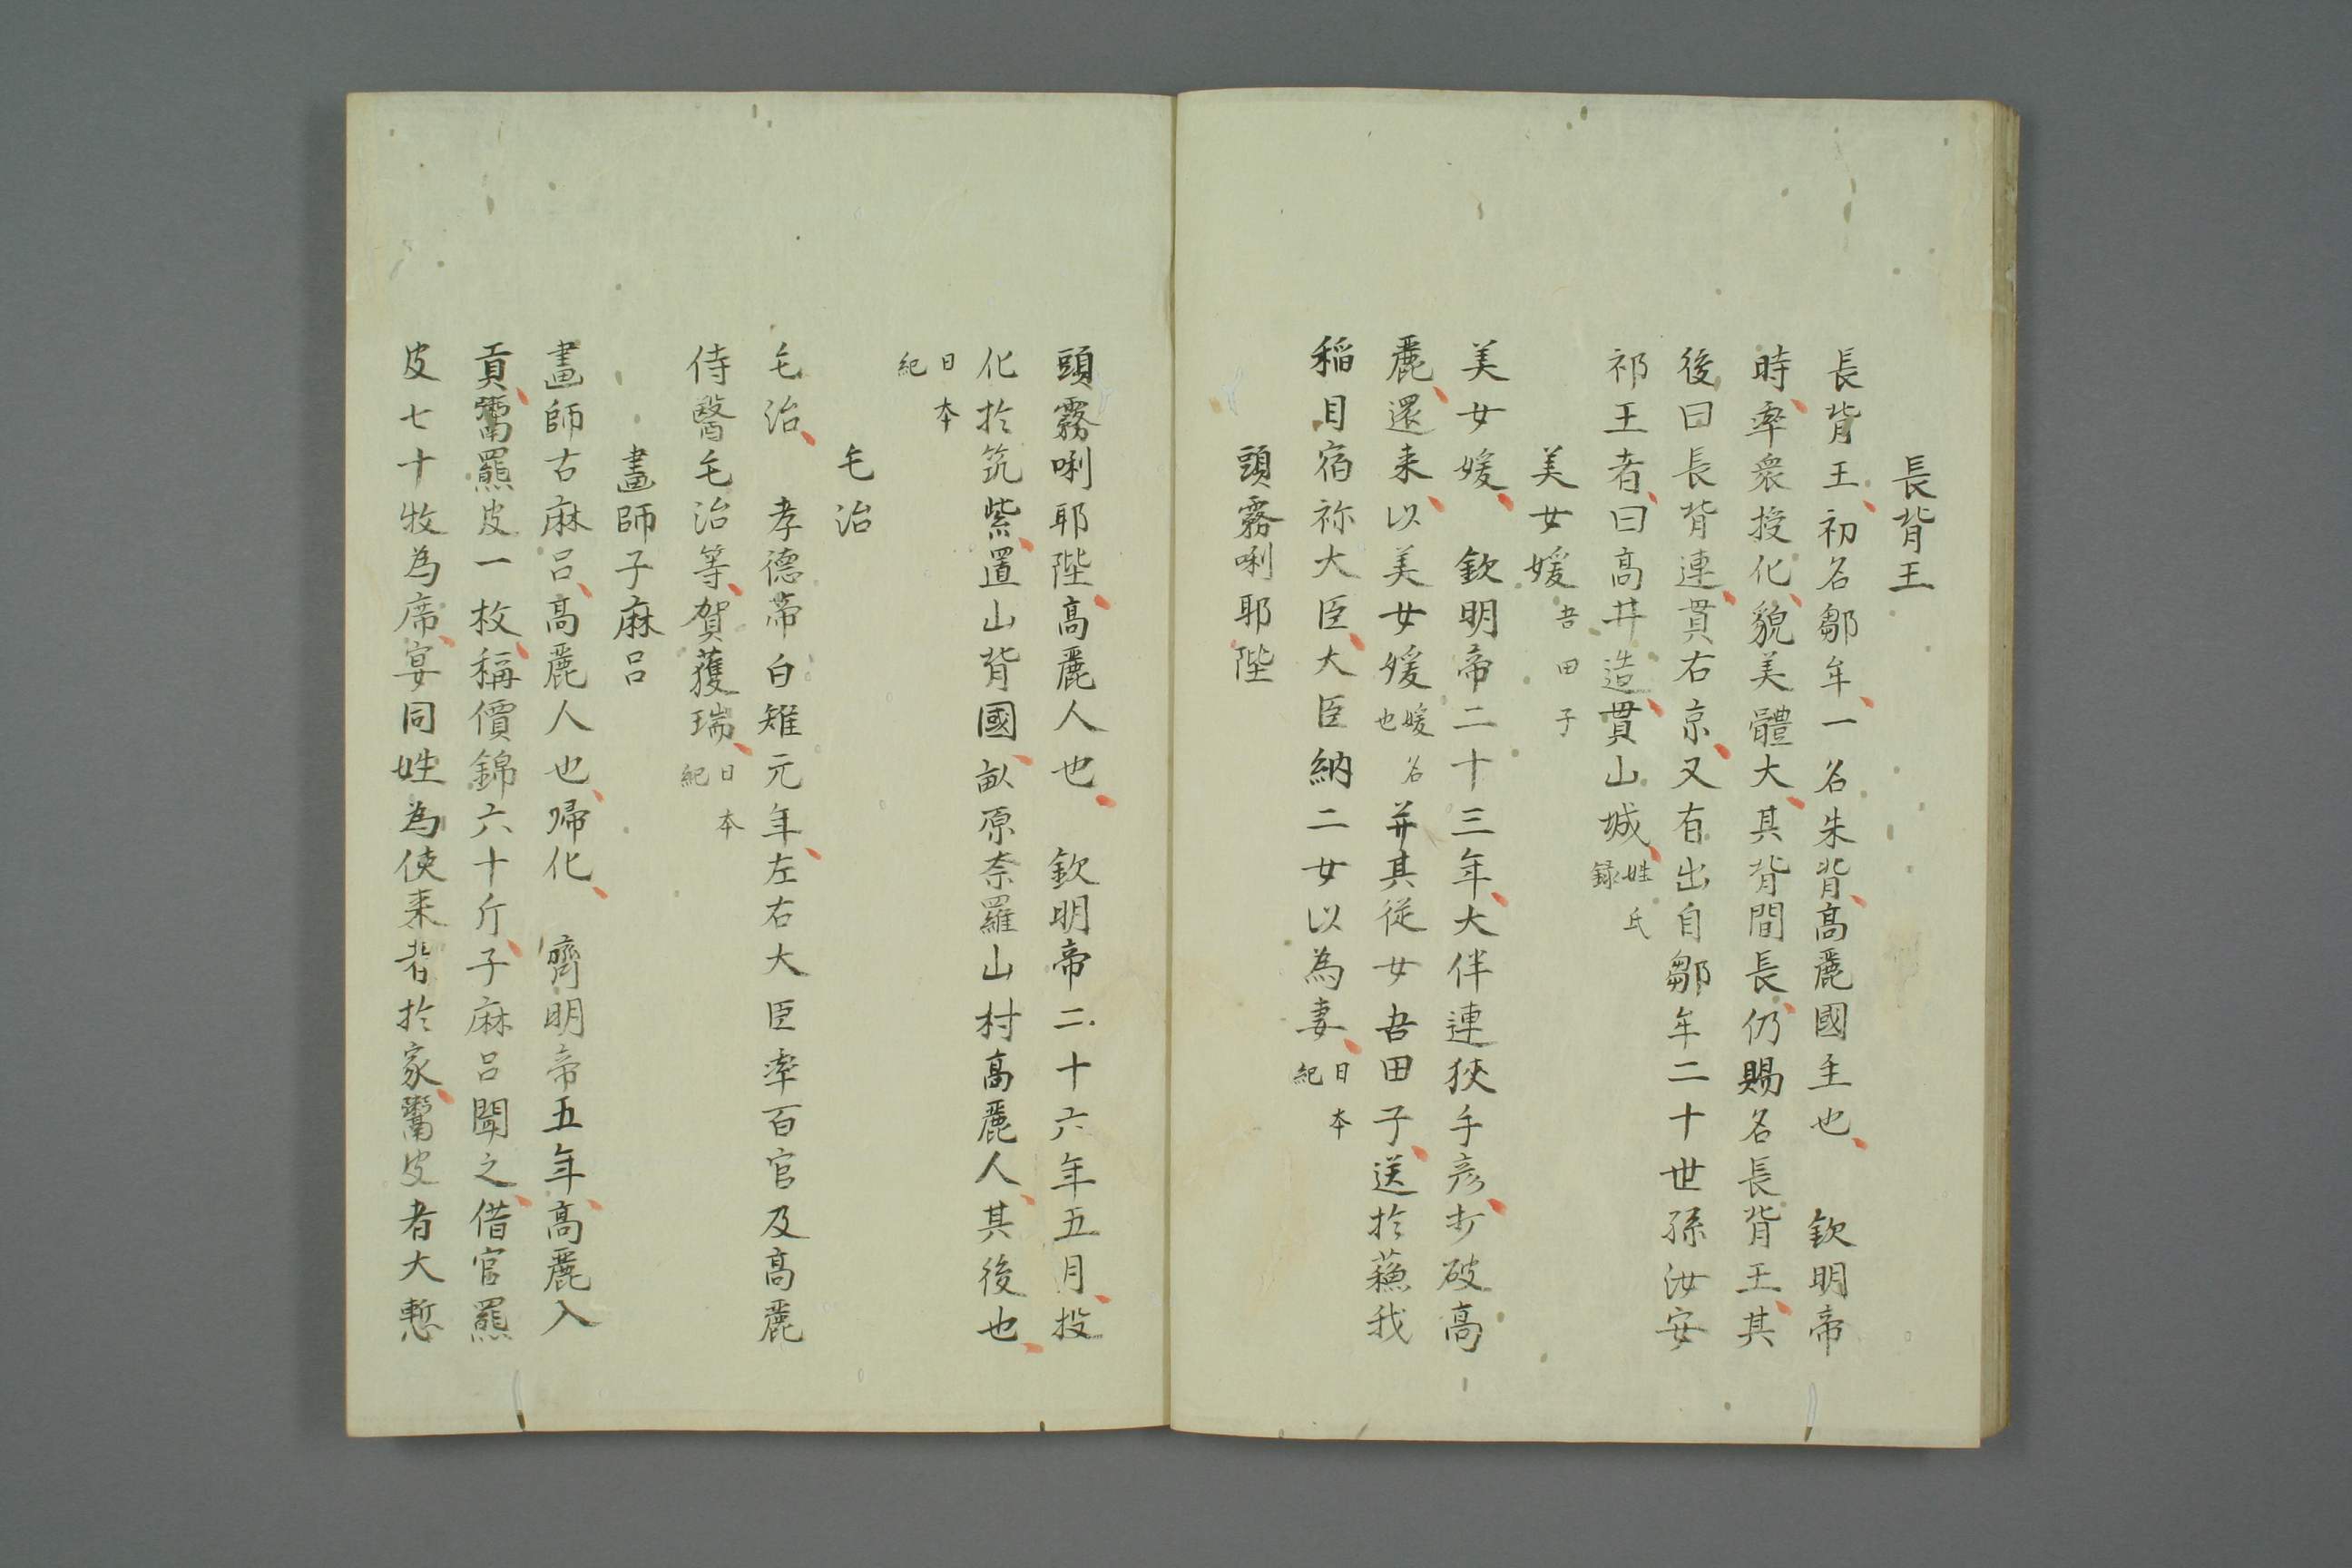 長背王
長背王初名鄒牟一名朱背高麗國主也　欽明帝
時率衆投化貌美體大其背間長仍賜名長背王其
後曰長背連貫右京又有出自鄒牟二十世孫汝安
祁王者曰高井造貫山城姓氏録
美女媛吾田子
美女媛　欽明帝二十三年大伴連狹手彦打破高
麗還来以美女媛媛名也并其従女吾田子送於蘓我
稲目宿祢大臣大臣納二女以為妻日本紀
頭霧唎耶陛
頭霧唎耶陛高麗人也　欽明帝二十六年五月投
化於筑紫置山背國畝原奈羅山村高麗人其後也
日本紀
毛治
毛治　孝德帝白雉元年左右大臣率百官及高麗
侍醫毛治等賀獲瑞日本紀
畫師子麻呂
畫師古麻呂高麗人也帰化　齊明帝五年高麗入
貢鬻羆皮一枚稱價錦六十斤子麻呂聞之借官羆
皮七十牧為席宴同姓為使来者於家鬻皮者大慙